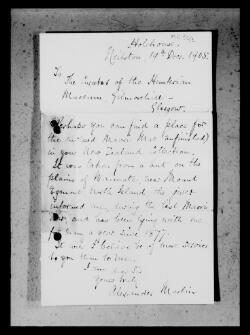 Holehouse.
Neilston, 14th Dec. 1905.
To
The Curator of the Hunterian
Museum Gilmorehill –
Glasgow.
Perhaps you can find a place for
the inclosed Maori Mat (unfinished)
in your New Zealand Collection.
It was taken from a hut on the
plains of Waimate near Mount
Egmont North Island, the giver
informed me, during the last Maori
War and has been lying with me
for him a year since 1877.
It will I believe be of more service
to you than to me.
I am dear Sir
Yours truly
Alexander